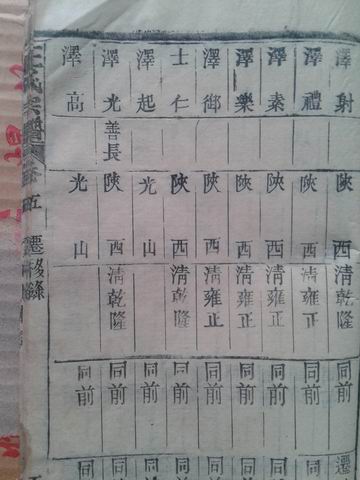 澤射 陝西清乾隆 同前 遷
澤禮 陝西清雍正 同前 同
澤素 陝西清乾隆 同前 同
澤樂 陝西清雍正 同前 同
澤御 陝西清雍正 同前 同
士仁 陝西清乾隆 同前 同
澤起 光山 同前 同
澤光善長 陝西清乾隆 同前 同
澤高 光山 同前 同
王氏宗譜 卷五 遷移錄